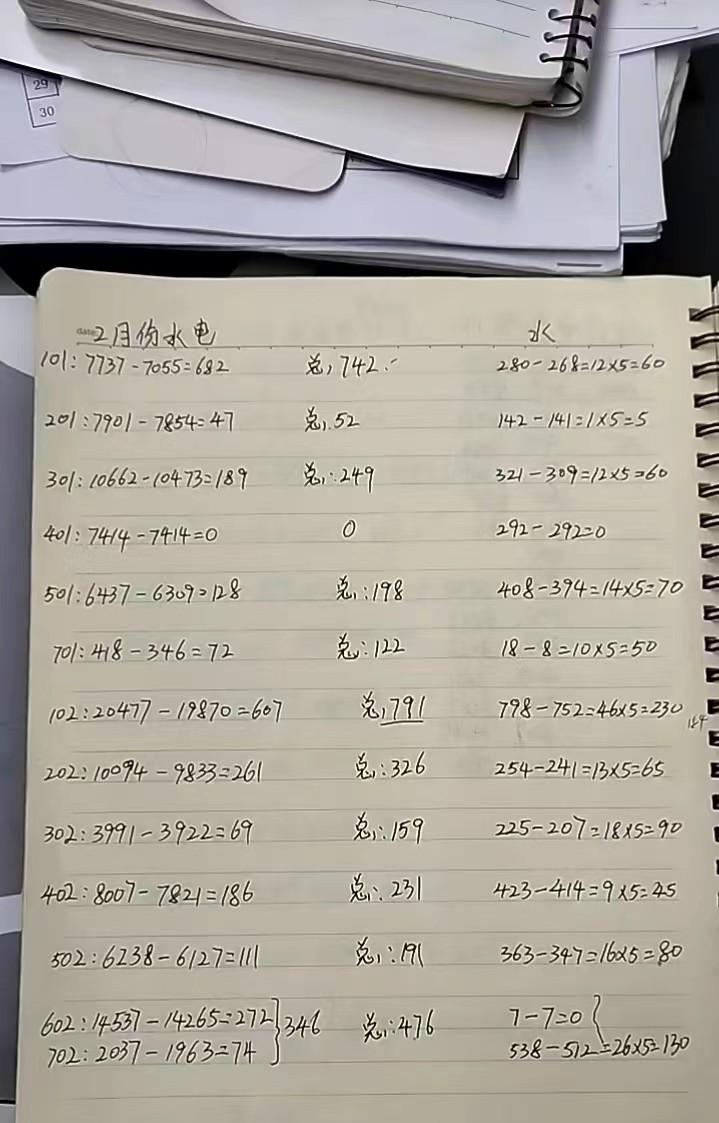 29
30
date: 2月份水电 水
101: 7737-7055=682 总: 742.- 280-268=12×5=60
201: 7901-7854=47 总: 52 142-141=1×5=5
301: 10662-10473=189 总: 249 321-309=12×5=60
401: 7414-7414=0 0 292-292=0
501: 6437-6309=128 总: 198 408-394=14×5=70
701: 418-346=72 总: 122 18-8=10×5=50
102: 20477-19870=607 总: 791 798-752=46×5=230
184
202: 10094-9833=261 总: 326 254-241=13×5=65
302: 3991-3922=69 总: 159 225-207=18×5=90
402: 8007-7821=186 总: 231 423-414=9×5=45
502: 6238-6127=111 总: 191 363-347=16×5=80
602: 14537-14265=272 } 346 总: 476 7-7=0
702: 2037-1963=74 538-512=26×5=130